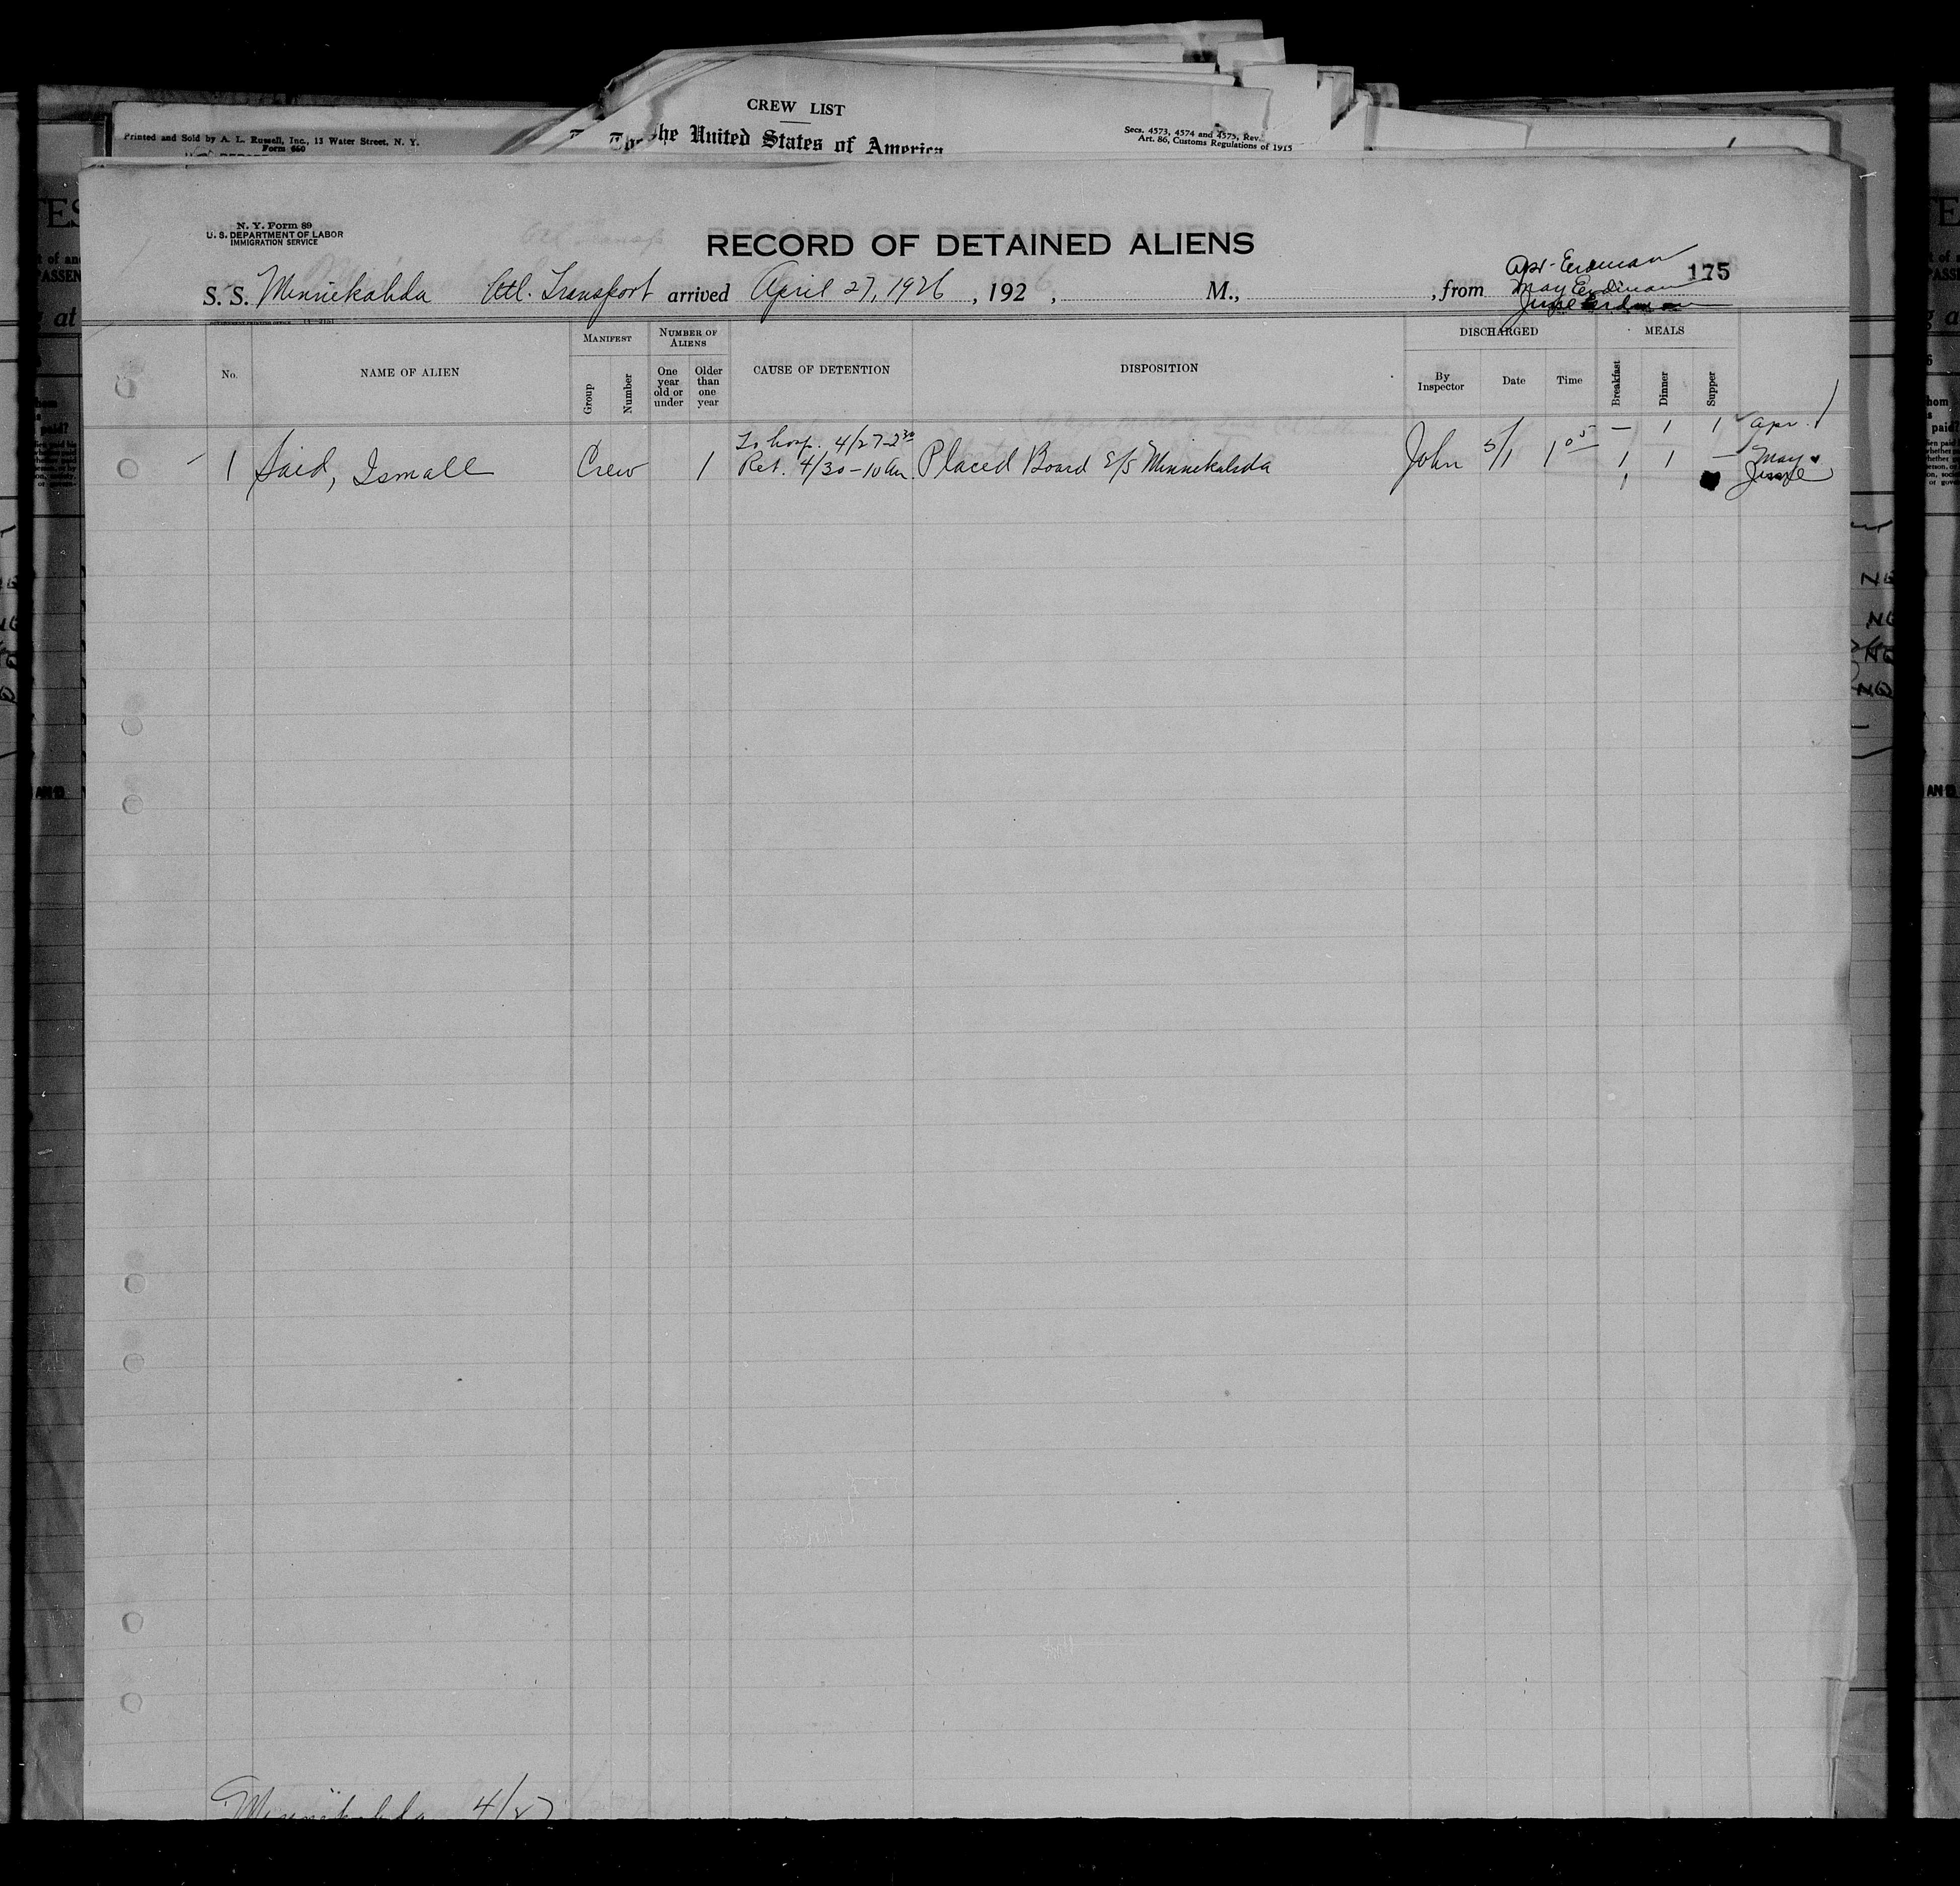 CREW LIST
Printed and Sold by A. L. Russell, Inc., 13 Water Street, N. Y.
Form 660
The United States of America
Secs. 4573, 4574 and 4575, Rev.
Art. 86, Customs Regulations of 1915
N. Y. Form 89
U. S. DEPARTMENT OF LABOR
IMMIGRATION SERVICE
RECORD OF DETAINED ALIENS
175
Apr - Erdman
May Erdman
June Erdman
S. S. Minnekahda Atl. Transport arrived April 27, 1926, 192 , M., , from
GOVERNMENT PRINTING OFFICE
No.
NAME OF ALIEN
MANIFEST
Group
Number
NUMBER OF ALIENS
One year old or under
Older than one year
CAUSE OF DETENTION
DISPOSITION
DISCHARGED
By Inspector
Date
Time
MEALS
Breakfast
Dinner
Supper
To hosp. 4/27-2 30 — 1 1 Apr. /
1 Said, Ismall Crew 1 Ret. 4/30-10 am. Placed Board S/S Minnekahda John 5/1 1 05 1 1 — May
1 June
Minnekahda 4/27